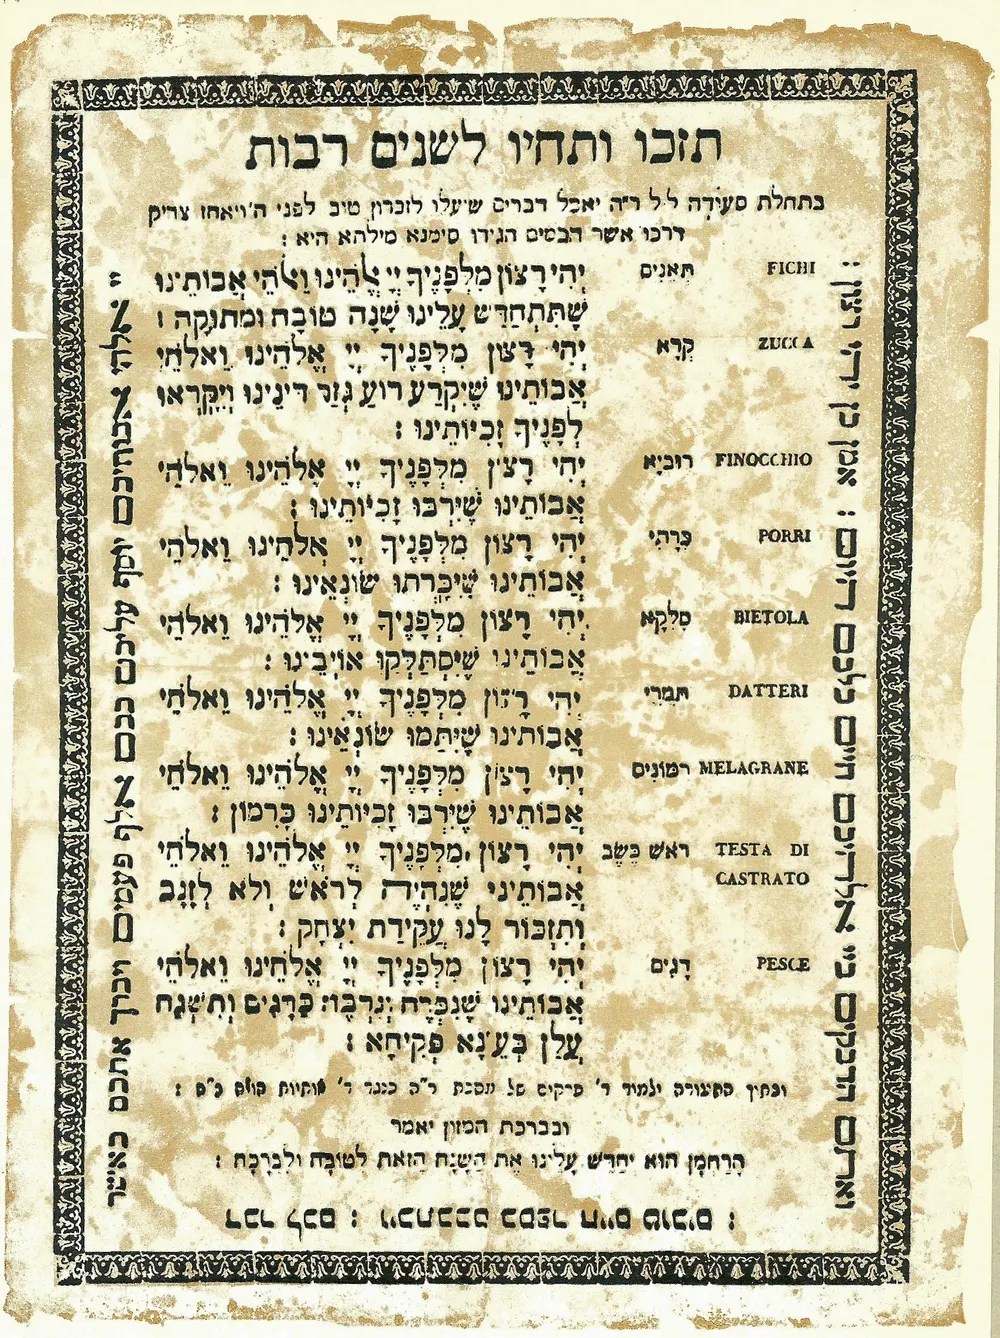 תזכו ותחיו לשנים רבות
בתחלת סעודה ל'ל ר"ה יאכל דברים שיעלו לזכרון טוב לפני ה' ויאחז צדיק
דרכו אשר הבשים הגידו סימנא מילתא היא :
FICHI תְּאֵנִים יְהִי רָצוֹן מִלְּפָנֶיךָ יְיָ אֱלֹהֵינוּ וֵאלֹהֵי אֲבוֹתֵינוּ
שֶׁתִּתְחַדֵּשׁ עָלֵינוּ שָׁנָה טוֹבָה וּמְתוּקָה :
ZUCCA קָרָא יְהִי רָצוֹן מִלְּפָנֶיךָ יְיָ אֱלֹהֵינוּ וֵאלֹהֵי
אֲבוֹתֵינוּ שֶׁיִּקְרַע רוֹעַ גְּזַר דִּינֵינוּ וְיִקָּרְאוּ
לְפָנֶיךָ זָכִיּוֹתֵינוּ :
FINOCCHIO רוּבִיָא יְהִי רָצוֹן מִלְּפָנֶיךָ יְיָ אֱלֹהֵינוּ וֵאלֹהֵי
אֲבוֹתֵינוּ שֶׁיִּרְבּוּ זָכִיּוֹתֵינוּ :
PORRI כַּרָתֵי יְהִי רָצוֹן מִלְּפָנֶיךָ יְיָ אֱלֹהֵינוּ וֵאלֹהֵי
אֲבוֹתֵינוּ שֶׁיִּכָּרְתוּ שׂוֹנְאֵינוּ :
BIETOLA סִלְקָא יְהִי רָצוֹן מִלְּפָנֶיךָ יְיָ אֱלֹהֵינוּ וֵאלֹהֵי
אֲבוֹתֵינוּ שֶׁיִּסְתַּלְּקוּ אוֹיְבֵינוּ :
DATTERI תַּמְרֵי יְהִי רָצוֹן מִלְּפָנֶיךָ יְיָ אֱלֹהֵינוּ וֵאלֹהֵי
אֲבוֹתֵינוּ שֶׁיִּתַּמּוּ שׂוֹנְאֵינוּ :
MELAGRANE רִמּוֹנִים יְהִי רָצוֹן מִלְּפָנֶיךָ יְיָ אֱלֹהֵינוּ וֵאלֹהֵי
אֲבוֹתֵינוּ שֶׁיִּרְבּוּ זָכִיּוֹתֵינוּ כָּרִמּוֹן :
TESTA DI רֹאשׁ כֶּשֶׂב יְהִי רָצוֹן מִלְּפָנֶיךָ יְיָ אֱלֹהֵינוּ וֵאלֹהֵי
CASTRATO אֲבוֹתֵינוּ שֶׁנִּהְיֶה לְרֹאשׁ וְלֹא לְזָנָב
וְתִזְכּוֹר לָנוּ עֲקֵידַת יִצְחָק :
PESCE דָּגִים יְהִי רָצוֹן מִלְּפָנֶיךָ יְיָ אֱלֹהֵינוּ וֵאלֹהֵי
אֲבוֹתֵינוּ שֶׁנִּפְרֶה וְנִרְבֶּה כַּדָּגִים וְתַשְׁגַּח
עֲלָן בְּעֵינָא פְּקִיחָא :
ובתוך הסעודה ילמוד ד' פרקים של מסכת ר"ה כנגד ד' אותיות
ובברכת המזון יאמר
הָרַחְמָן הוּא יְחַדֵּשׁ עָלֵינוּ אֶת הַשָּׁנָה הַזֹּאת לְטוֹבָה וְלִבְרָכָה :
ואתם הדבקים ביי אלהיכם חיים כלכם היום : אמן כן יהי רצון :
יי אלהי אבותיכם יוסף עליכם ככם אלף פעמים ויברך אתכם כאשר
דבר לכם : ויכתבכם בספר חיים טובים :